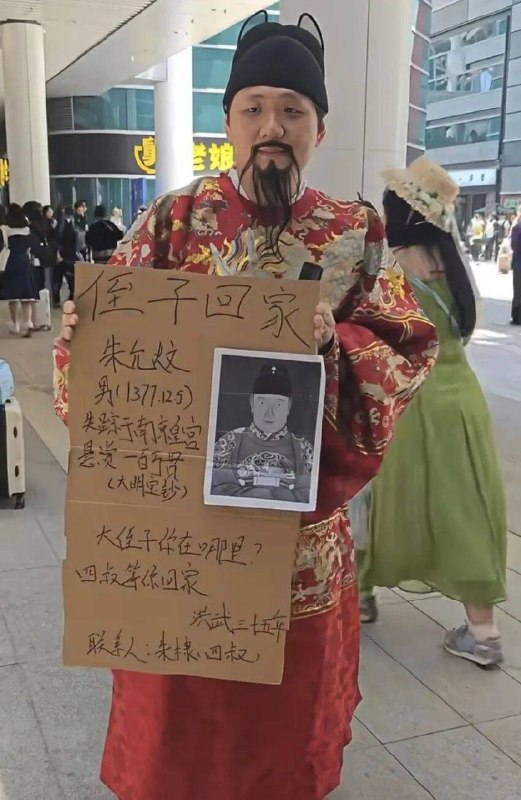 侄子回家
朱允炆
男(1377.12.5)
失踪于南京皇宫
悬赏一百万贯
(大明宝钞)
大侄子你在哪里?
四叔等你回家
洪武三十五年
联系人:朱棣、四叔
老娘